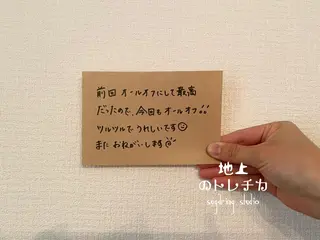 前回 オールオフにして最高
だったので、今回もオールオフ!!
ツルツルでうれしいです☺
また おねがいします
地上
のトレチカ